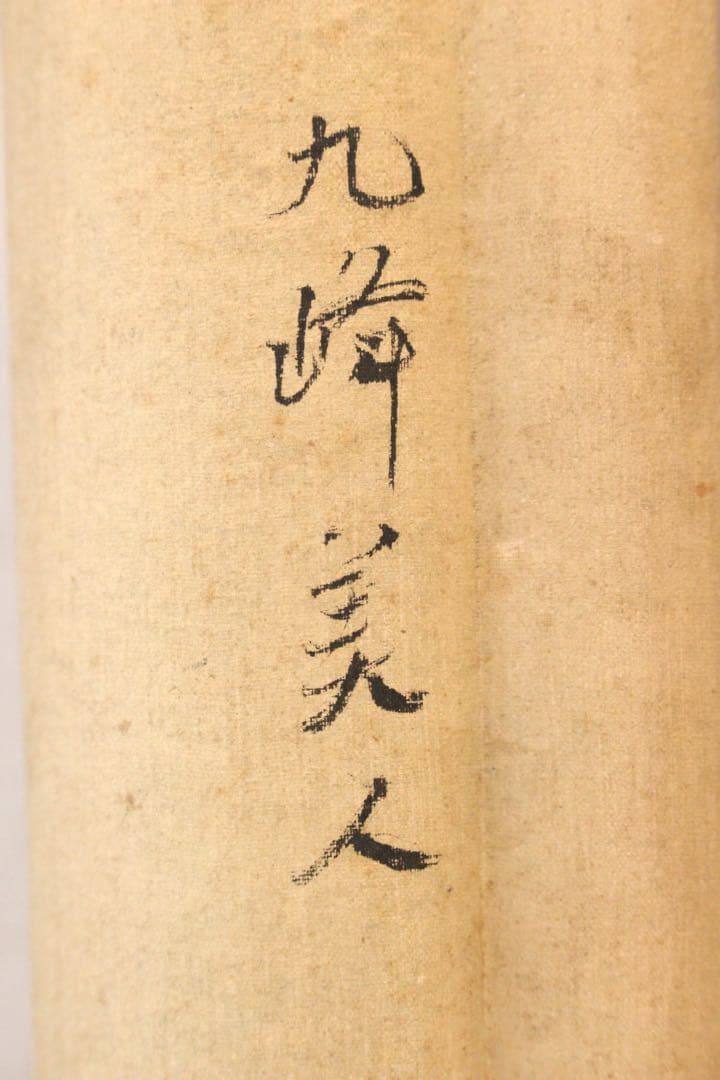 九峰美人